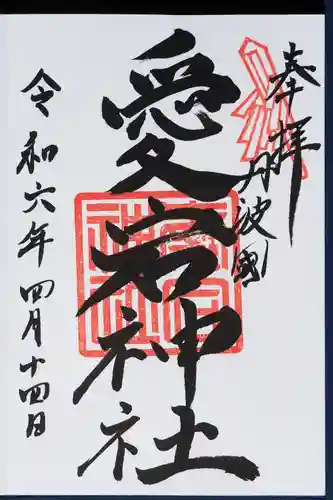 奉拝
丹波國
愛宕神社
令和六年四月十四日